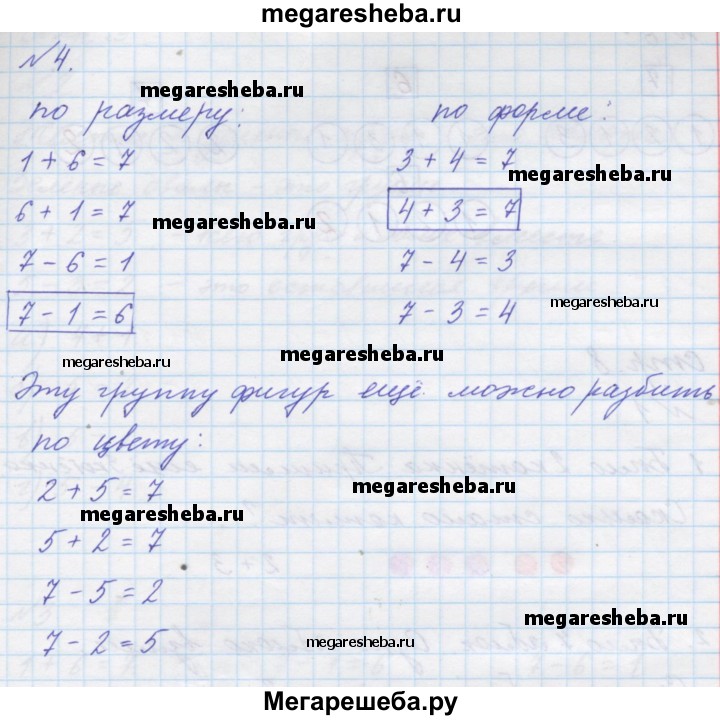 megaresheba.ru
№4.
megaresheba.ru
по размеру:
1 + 6 = 7
6 + 1 = 7
megaresheba.ru
7 - 6 = 1
7 - 1 = 6
по форме:
3 + 4 = 7
megaresheba.ru
4 + 3 = 7
7 - 4 = 3
7 - 3 = 4
megaresheba.ru
megaresheba.ru
megaresheba.ru
Эту группу фигур ещё можно разбить
по цвету:
2 + 5 = 7
megaresheba.ru
5 + 2 = 7
7 - 5 = 2
megaresheba.ru
7 - 2 = 5
megaresheba.ru
Мегарешеба.ру